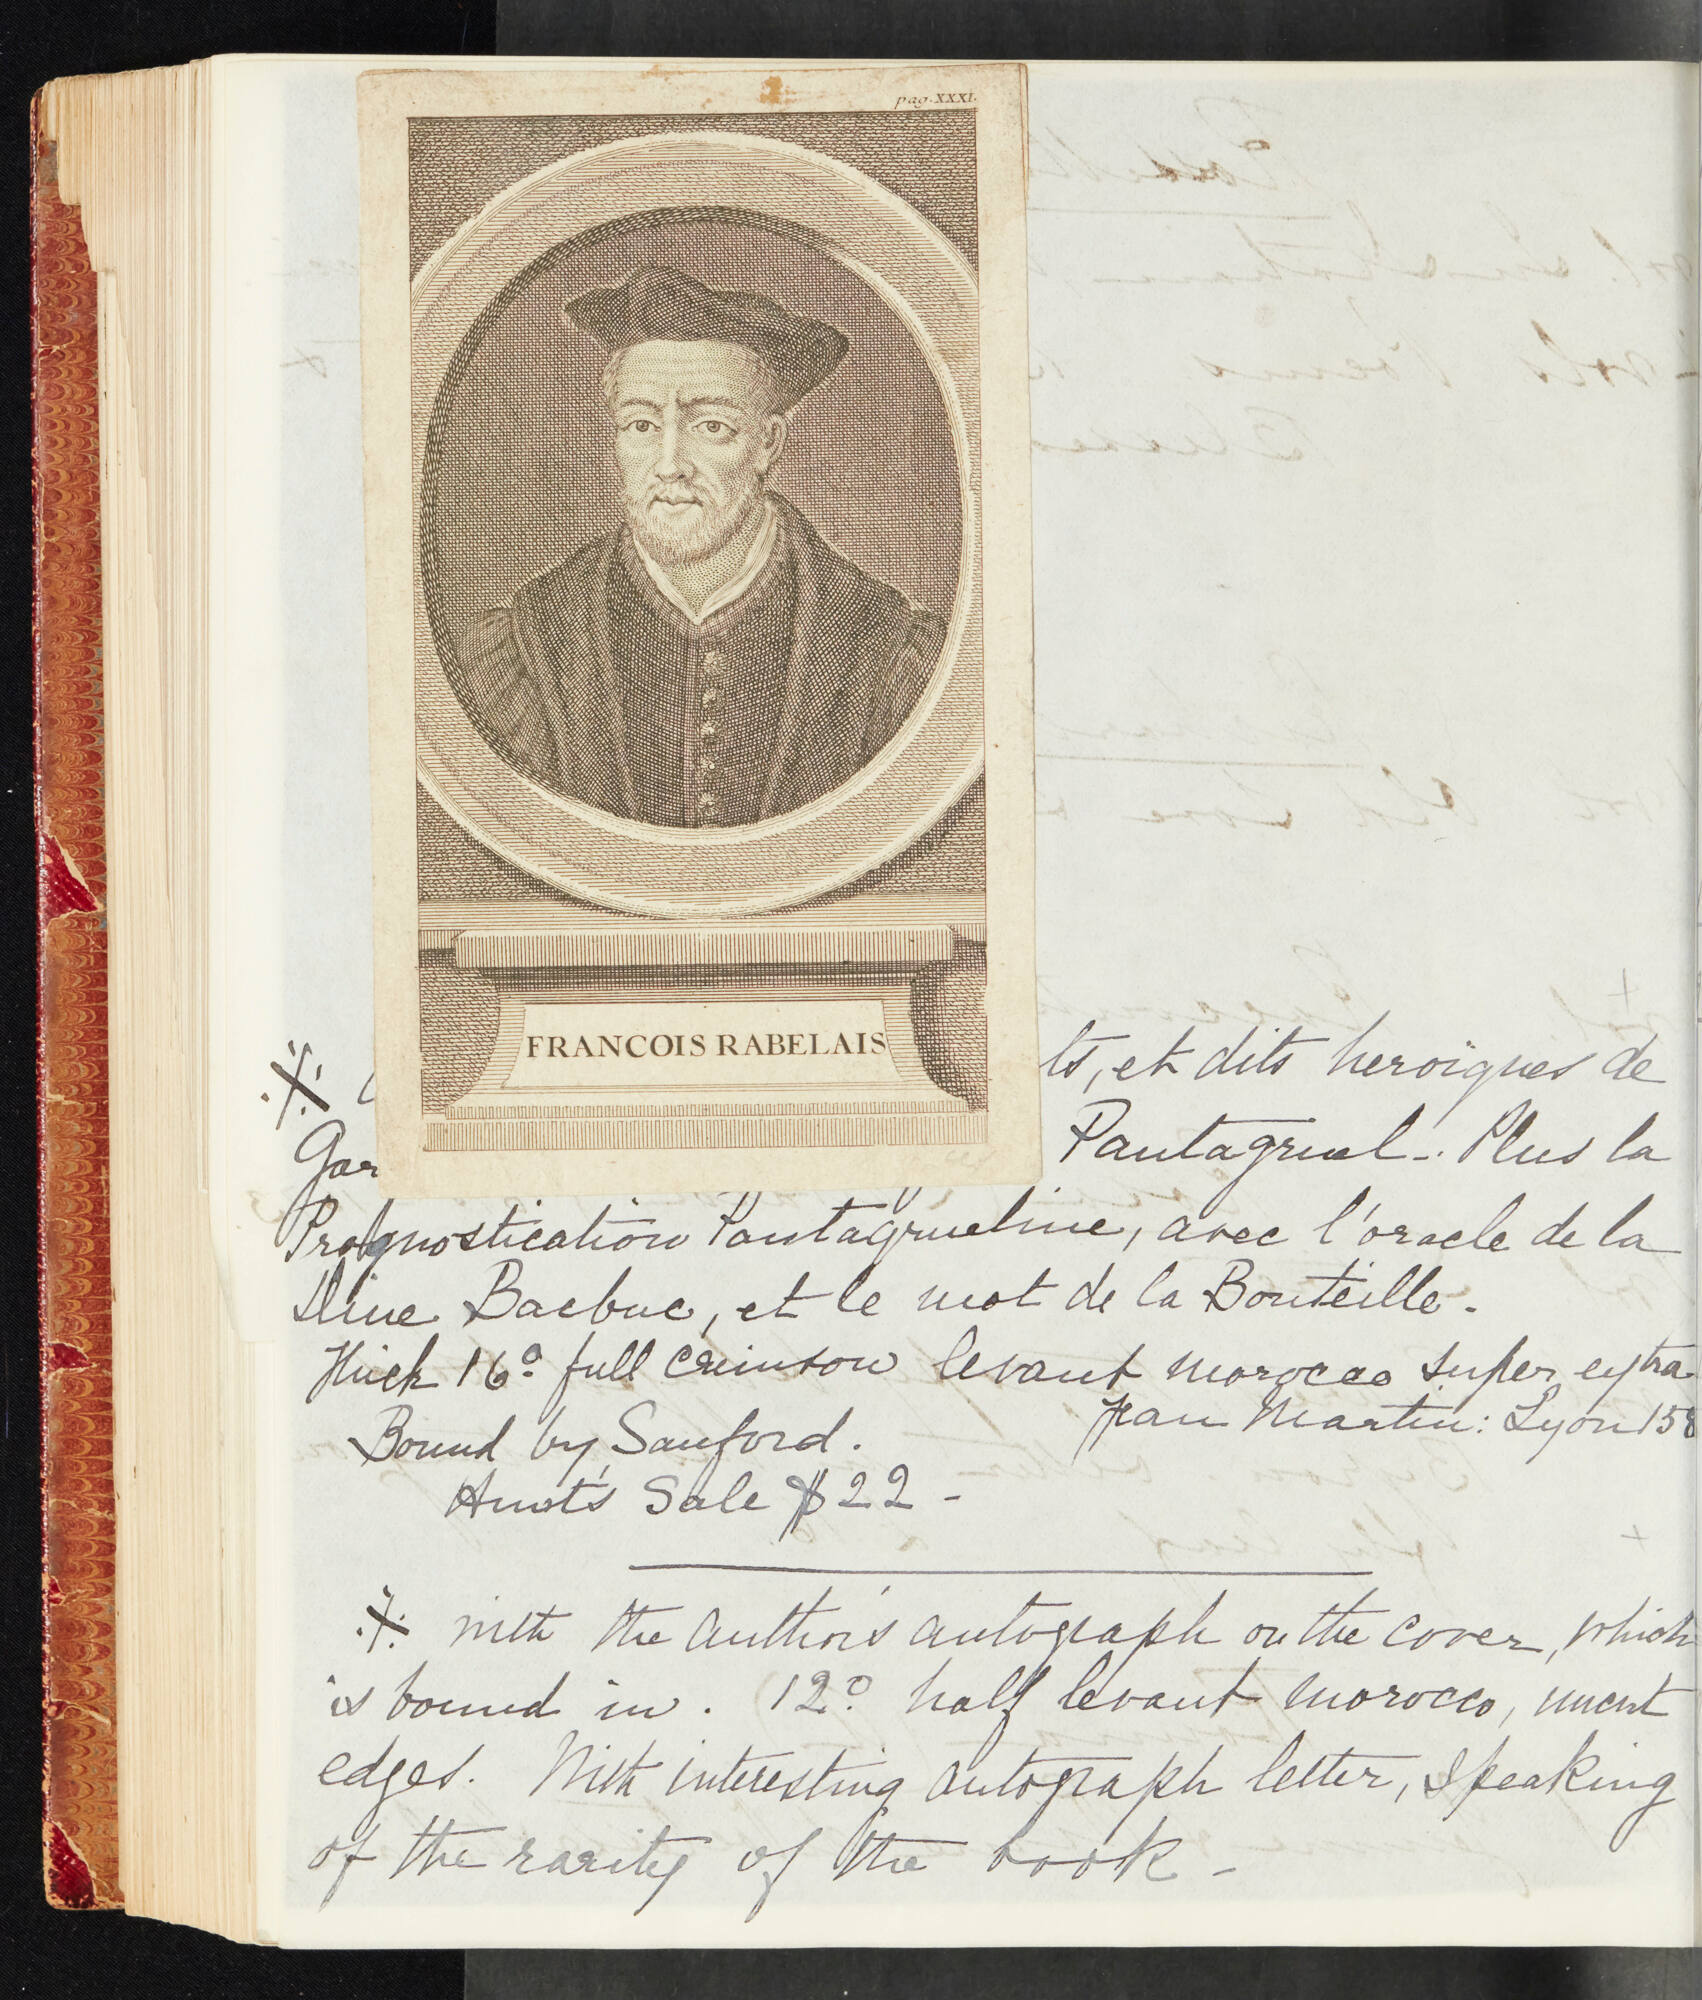 pag. XXXI.
FRANCOIS RABELAIS
ts, et dits heroïques de
Gar Pantagruel -. Plus la
Prognostication Pantagrueline, avec l'oracle de la
Dive Bacbuc, et le mot de la Bouteille -
Thick 16º full crimson levant morocco super extra
Jean Martin: Lyon 158
Bound by Sanford.
Hunt's Sale $22 -
With the author's autograph on the cover, which
is bound in. 12º. half levant morocco, uncut
edges. With interesting autograph letter, speaking
of the rarity of the book -